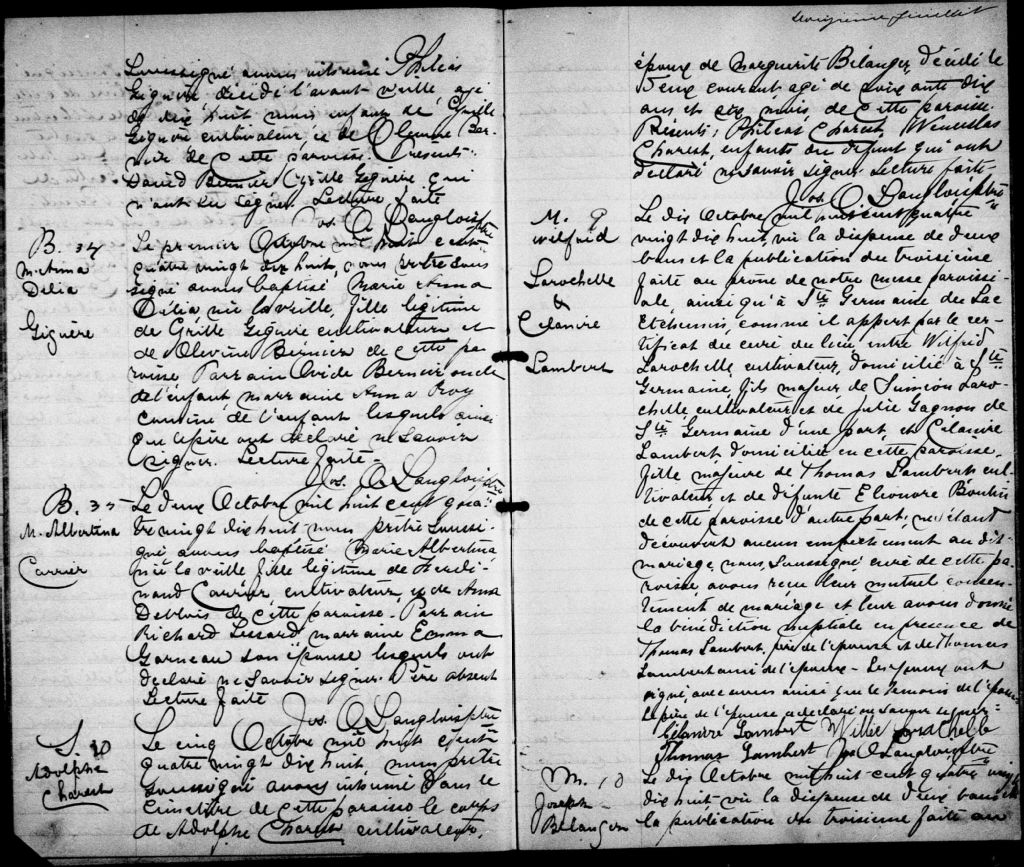 Soussigné avons inhumé Philéas
Giguère décédé l'avant veille, agé
de dix huit mois enfant de Cyrille
Giguère cultivateur, et de Olevine Ber-
nier de cette paroisse. Présents:
David Bernier Cyrille Giguère qui
n'ont su signer. Lecture faite
Jos. O. Langlois ptre
B. 34
M. Anna
Delia
Giguère
Le premier Octobre mil huit cent
quatre vingt dix huit, nous prêtre sous
signé avons baptisé Marie Anna
Délia née la veille, fille légitime
de Cyrille Giguère cultivateur et
de Olevine Bernier de cette pa
roisse Parrain Ovide Bernier oncle
de l'enfant marraine Anna Roy
cousine de l'enfant lesquels ainsi
que le père ont déclaré ne savoir
signer. Lecture faite-
Jos. O. Langlois ptre
B. 35
M. Albertina
Carrier
Le deux Octobre mil huit cent qua-
tre vingt dix huit nous prêtre soussi-
gné avons baptisé Marie Albertina
née la veille fille légitime de Ferdi-
nand Carrier cultivateur, et de Anna
Deblois de cette paroisse. Parrain
Richard Lessard, marraine Emma
Garneau son épouse lesquels ont
déclaré ne savoir signer. Père absent
Lecture faite
Jos. O. Langlois ptre
S. 20
Adolphe
Charest
Le cinq Octobre mil huit cent
quatre vingt dix huit, nous prêtre
soussigné avons inhumé dans le
cimetière de cette paroisse le corps
de Adolphe Charest cultivateur,
feuillet
époux de Marguerite Bélanger, décédé le
deux courant agé de soixante dix
ans et six mois, de cette paroisse.
Présents; Philéas Charest, Wenceslas
Charest, enfants du défunt qui ont
déclaré ne savoir signer. Lecture faite-
Jos. O. Langlois ptre
M. 9
Wilfrid
Larochelle
&
Celanire
Lambert
Le dix Octobre mil huit cent quatre
vingt dix huit, vu la dispense de deux
bans et la publication du troisième
faite au prône de notre messe paroissi-
ale, ainsi qu'à Ste Germaine du Lac
Etchemin, comme il appert par le cer-
tificat du curé du lieu, entre Wilfrid
Larochelle, cultivateur, domicilié à Ste
Germaine, fils majeur de Siméon Laro-
chelle cultivateur et de Julie Gagnon de
Ste Germaine d'une part, et Celanire
Lambert domiciliée en cette paroisse,
fille majeure de Thomas Lambert cul-
tivateur et de défunte Eléonore Boutin
de cette paroisse d'autre part; ne s'étant
découvert aucun empêchement au dit
mariage, nous, Soussigné curé de cette pa-
roisse, avons reçu leur mutuel consen-
tement de mariage et leur avons donné
la bénédiction nuptiale en présence de
Thomas Lambert, père de l'épouse et de Thomas
Lambert ami de l'époux - Les époux ont
signé avec nous ainsi que le témoin de l'époux
Le père de l'épouse a déclaré ne savoir signer-
Célanire Lambert Willie Larochelle
Thomas Lambert Jos O Langlois ptre
M. 10
Joseph
Bélanger
Le dix Octobre mil huit cent quatre vingt
dix huit vu la dispense de deux bans et
la publication du troisième faite au